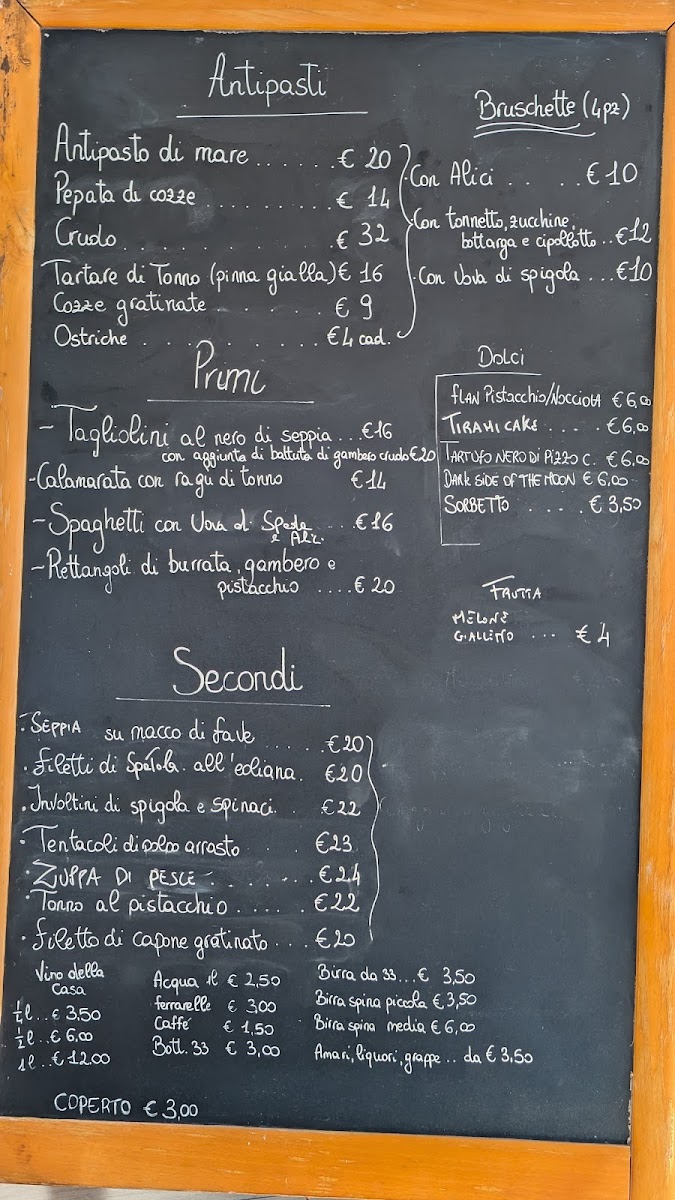 Antipasti
Antipasto di mare ....... € 20
Pepata di cozze ......... € 14
Crudo ......... € 32
Tartare di Tonno (pinna gialla) € 16
Cozze gratinate ...... € 9
Ostriche ......... € 4 cad.
Bruschette (4pz)
Con Alici ...... € 10
Con tonnetto, zucchine,
bottarga e cipollotto .. € 12
Con Uova di spigola ... € 10
Primi
- Tagliolini al nero di seppia ... € 16
con aggiunta di battuta di gambero crudo € 20
- Calamarata con ragù di tonno € 14
- Spaghetti con Uova d. Spada ... € 16
- Rettangoli di burrata, gambero e
pistacchio .... € 20
Dolci
FLAN PISTACCHIO/NOCCIOLA € 6,00
TIRAMI CAKE ..... € 6,00
TARTUFO NERO DI PIZZO C. € 6,00
DARK SIDE OF THE MOON € 6,00
SORBETTO ..... € 3,50
FRUTTA
MELONE
GIALLINO ... € 4
Secondi
• SEPPIA su macco di fave ..... € 20
• Filetti di Spatola. all'eoliana. € 20
• Involtini di spigola e spinaci. € 22
• Tentacoli di polpo arrosto . € 23
• ZUPPA DI PESCE ........ € 24
• Tonno al pistacchio ..... € 22
• Filetto di capone gratinato ... € 20
Vino della
Casa
¼ l... € 3,50
½ l... € 6,00
1 l... € 12.00
Acqua 1l € 2,50
ferrarelle € 3,00
Caffé € 1,50
Bott. 33 € 3,00
Birra da 33 ... € 3,50
Birra spina piccola € 3,50
Birra spina media € 6,00
Amari, liquori, grappe .. da € 3,50
COPERTO € 3,00